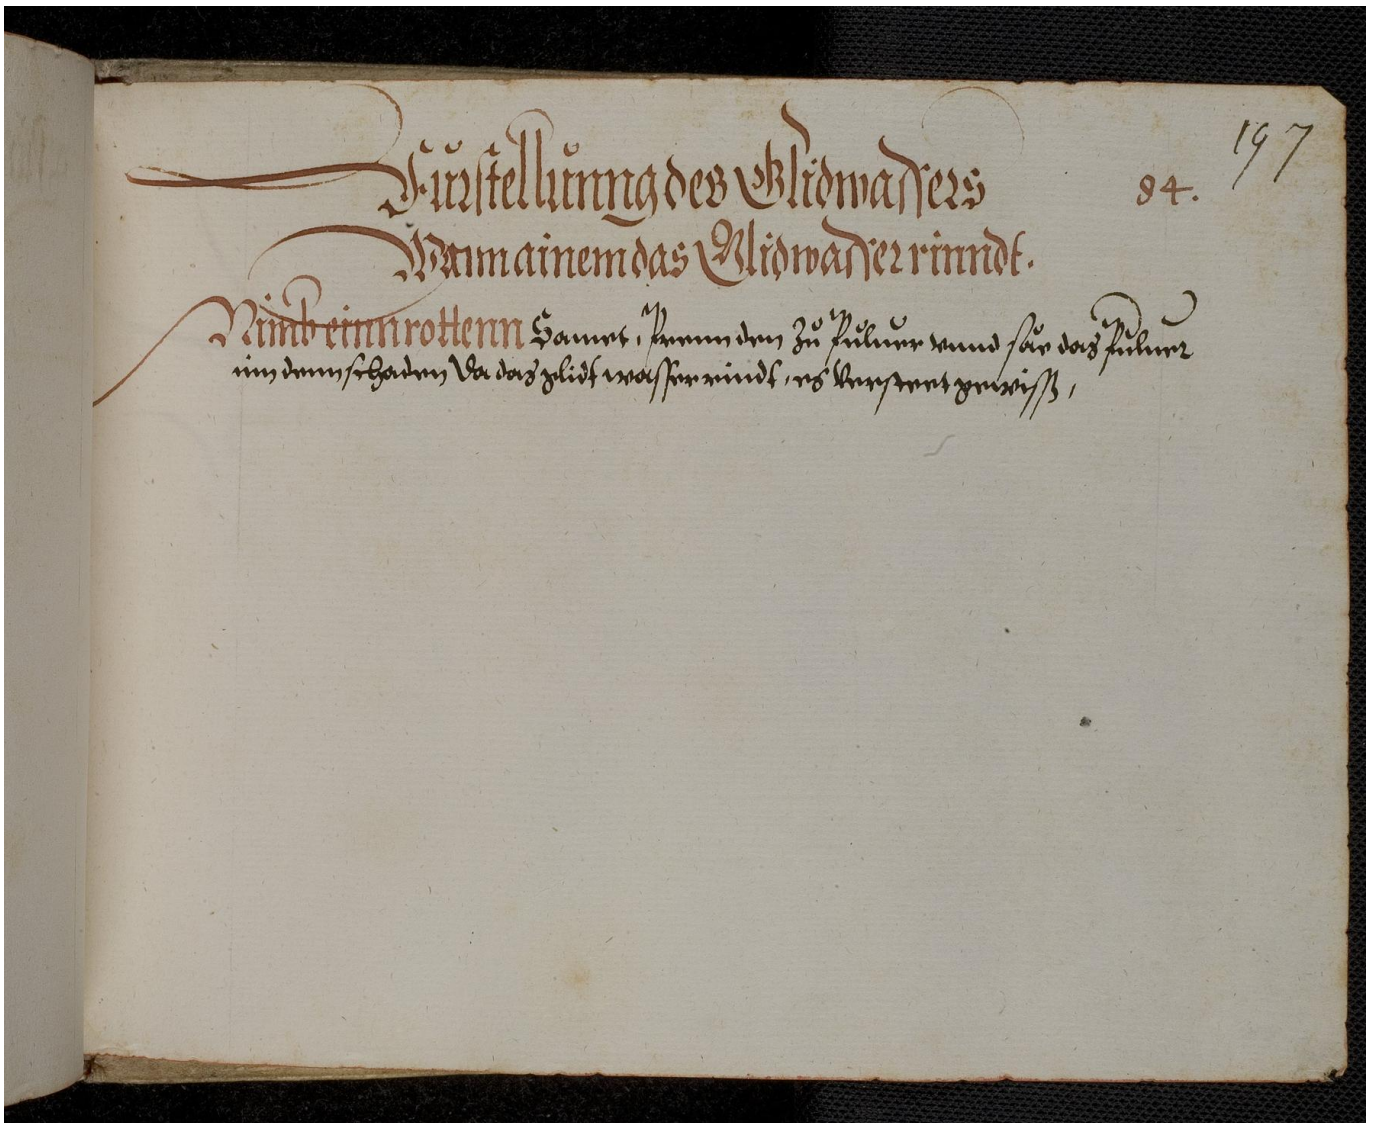 197
Fürstellunng des Glidwassers 84.
Wann ainem das Glidwasser rinndt.
Nimb einn rottenn Samet, Prenn den zu Puluer vnnd säe das Puluer
inn denn schaden da das glidt wasser rindt, es versteet gewiss,